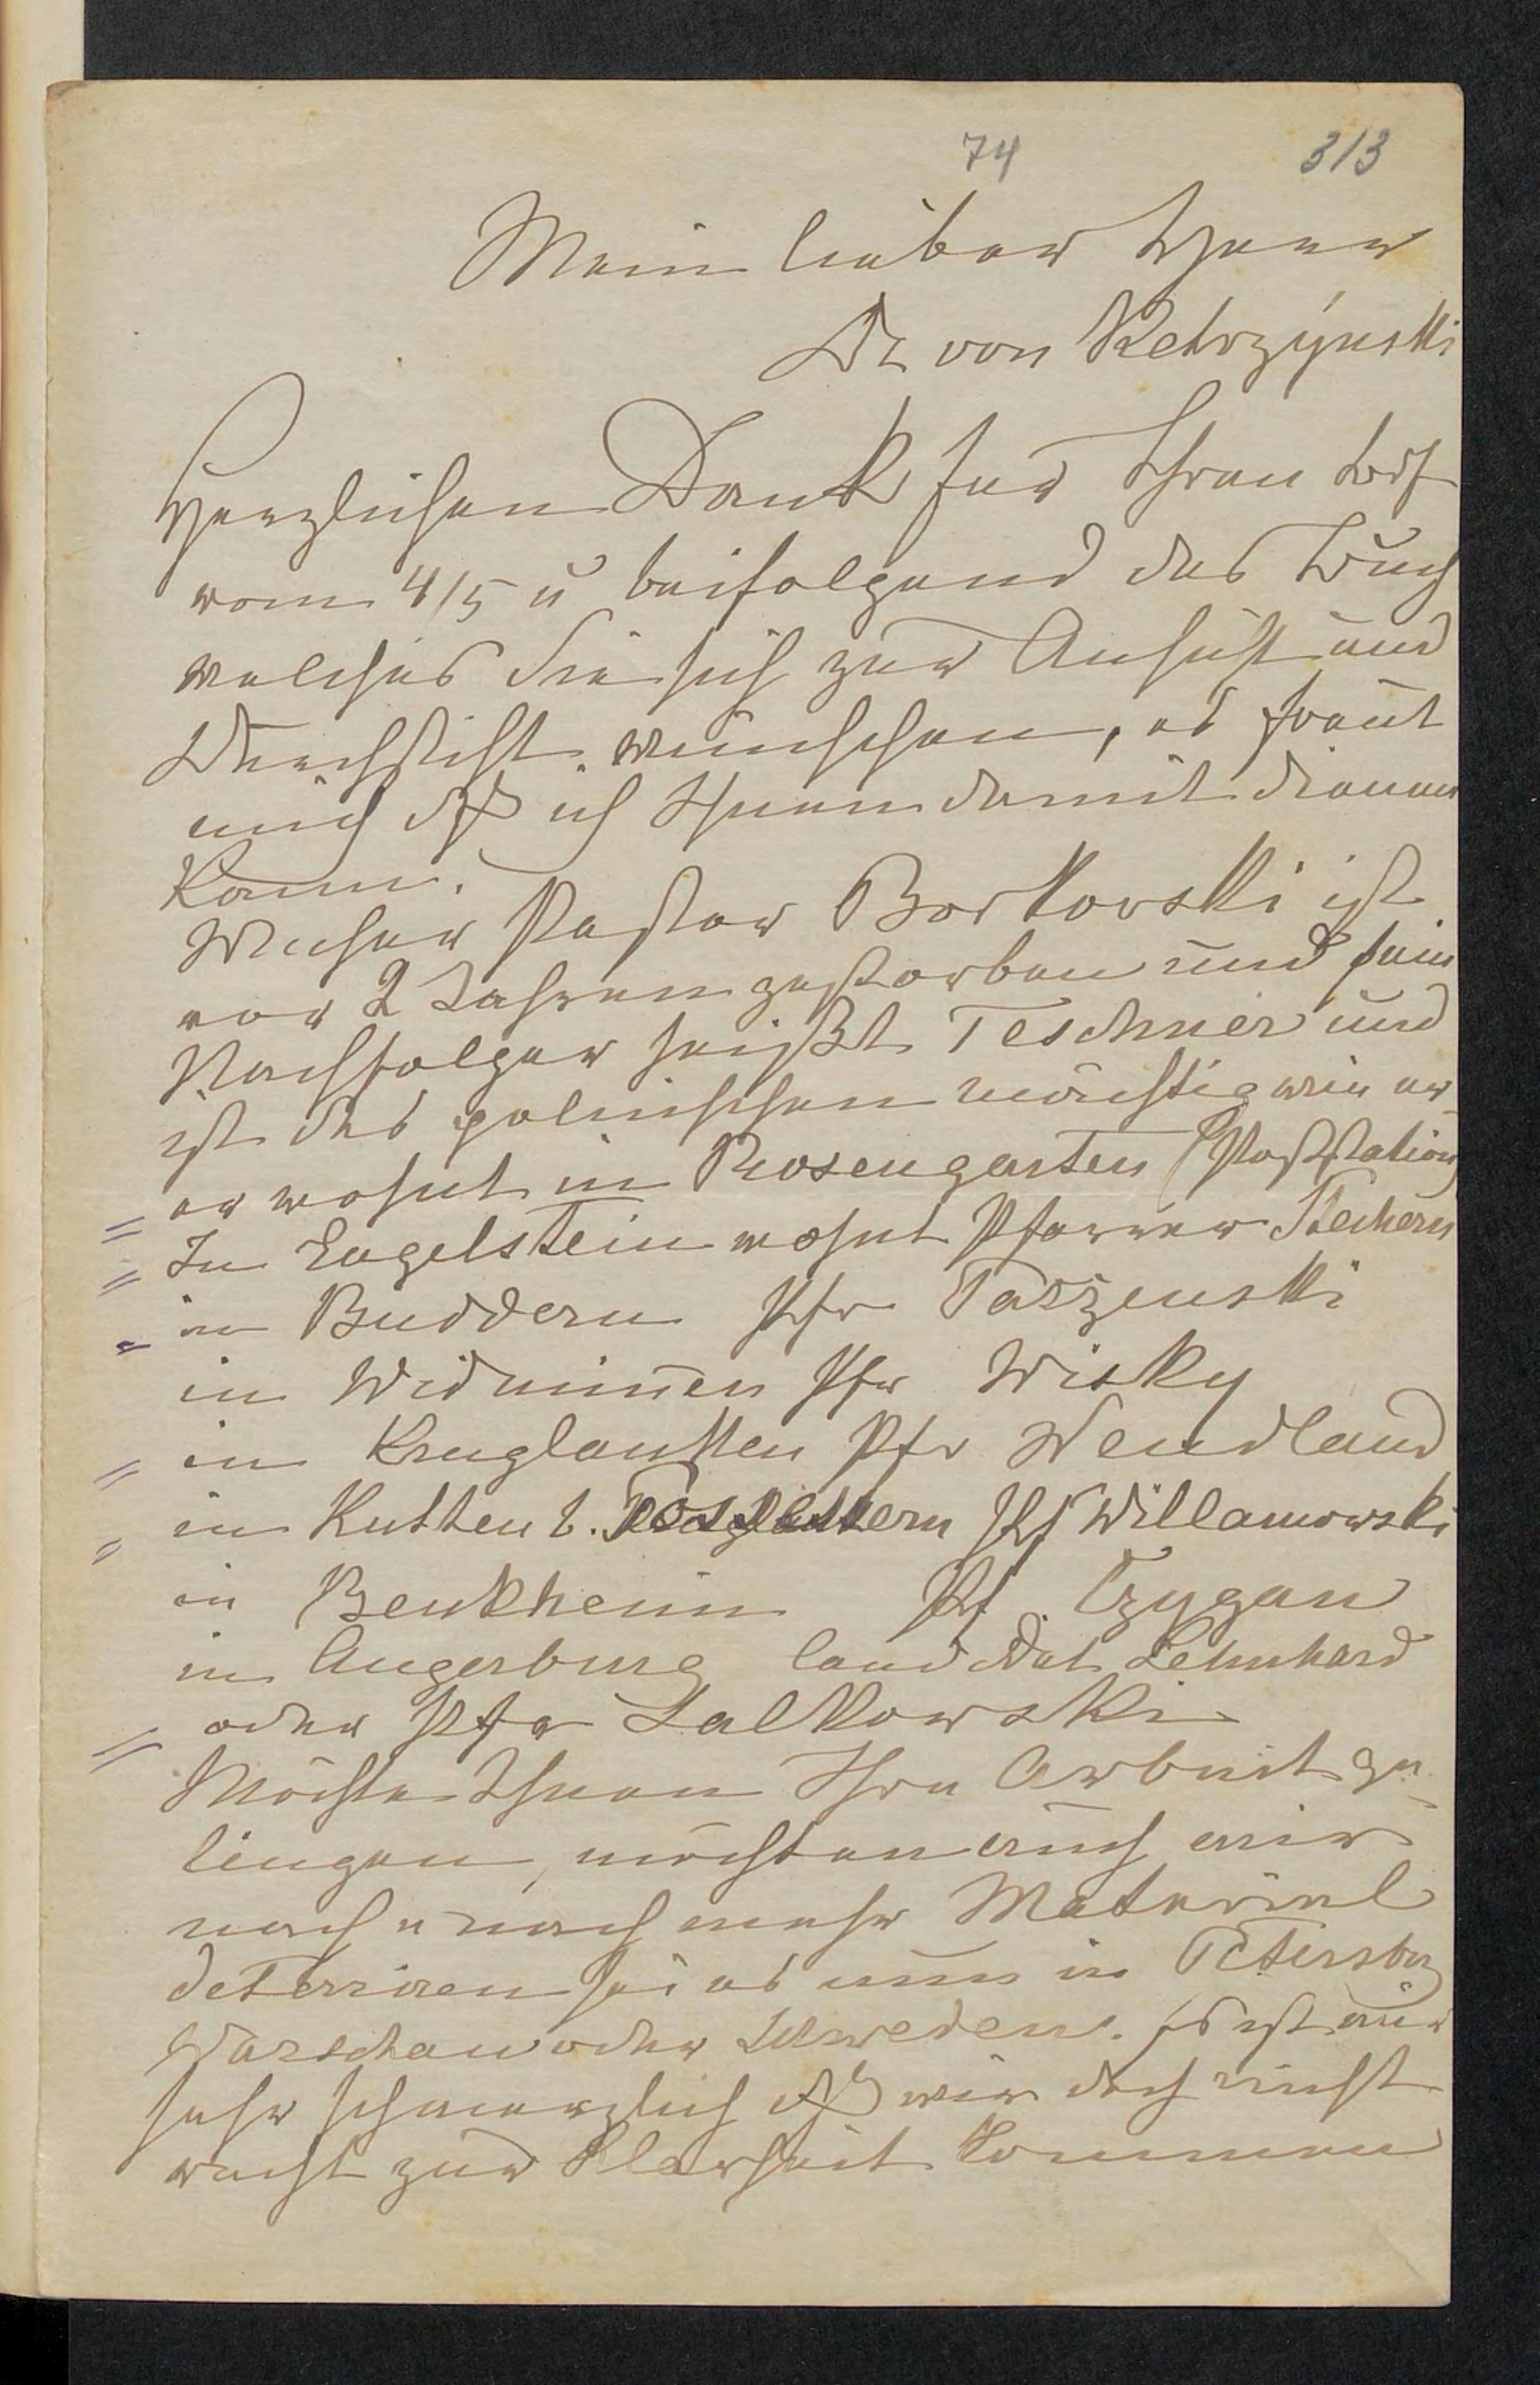 74 313
Mein lieber Herr
Dr von Ketrzÿnski
Herzlichen Dank für Ihren Brf
vom 4/5 u beifolgend das Buch
welches Sie sich zur Ansicht und
Durchsicht wünschen, es freut
mich dß ich Ihnen damit dienen
kann.
Pastor Borkovski ist
vor 2 Jahren gestorben und sein
Nachfolger heißt Teschner und
ist des polnischen mächtig wie er
er wohnt in Rosengarten (Poststation
In Engelstein wohnt Pfarrer Stechern
in Buddern Pfr Paszenski
in Widminnen Pfr Wisky
in Kruglanken Pfr Wendland
in Kutten b. Pf Willamowski
in Benkheim Pf Czygan
in Angerburg Lehnhard
oder Pfr Salkowski
Möchte Ihnen Ihre Arbeit ge-
lingen, möchten auch wir
noch u noch mehr Material
sei es nun in Petersbrg
Warschau oder Schweden. Es ist mir
sehr schmerzlich dß wir doch nicht
recht zur Klarheit kommen